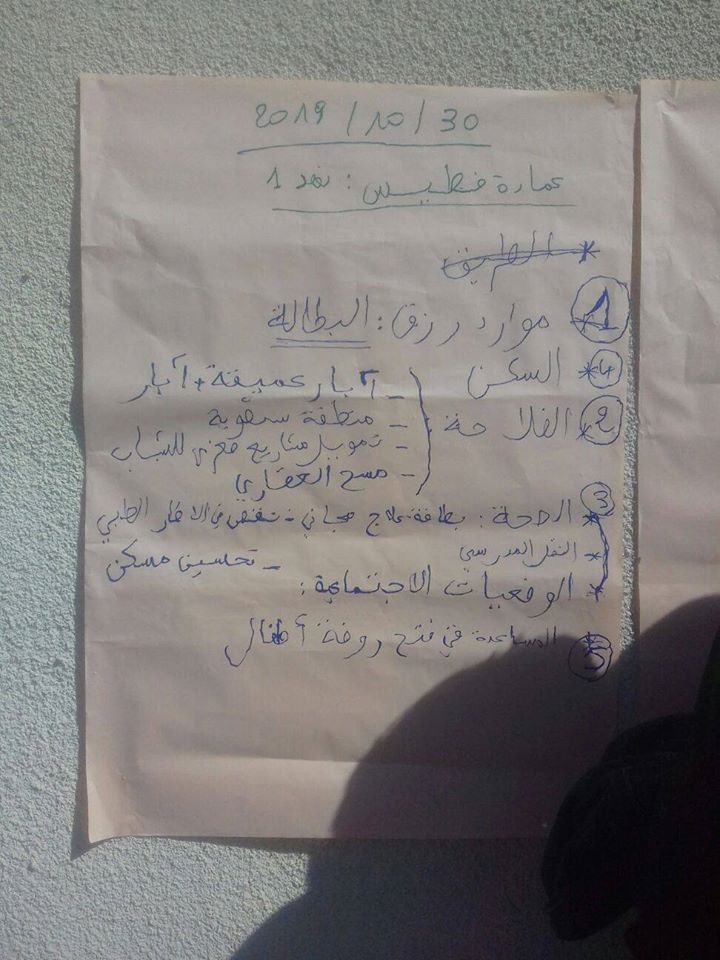 2019/10/30
عمارة فطيس: نهد 1
* الطريق
1 * موارد رزق: البطالة
4 * السكن
2 * الفلاحة:
- آبار عميقة + آبار
- منطقة سقوية
- تمويل مشاريع صغرى للشباب
- مسح العقاري
3 * الصحة: بطاقة علاج مجاني - نقص في الاطار الطبي
* النقل المدرسي
* الوضعيات الاجتماعية: - تحسين مسكن
5 * المساعدة في فتح روضة أطفال